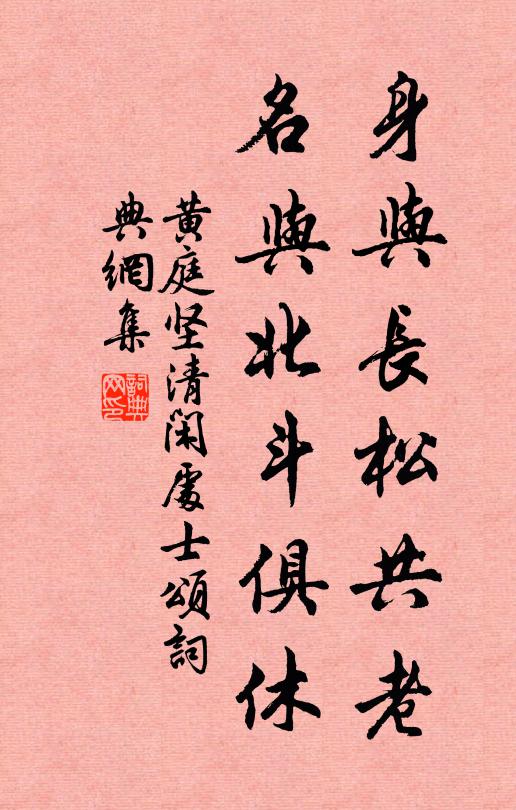 身與長松共老
名與北斗俱休
黃庭坚清閑處士頌詞
典網集
詞典网印